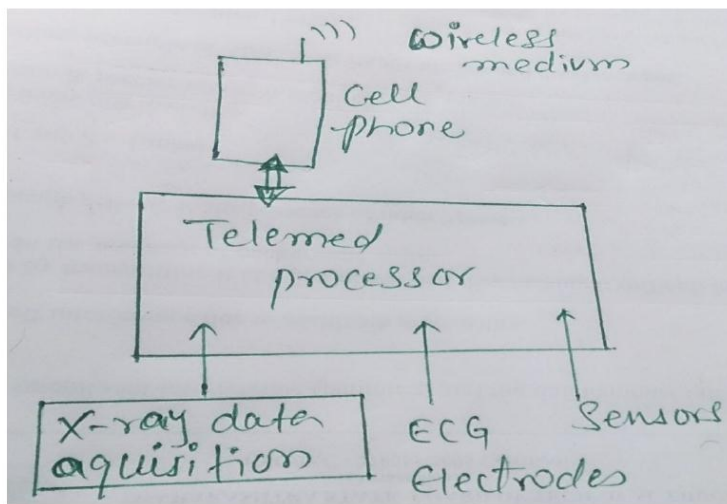 wireless
medium
Cell
phone
Telemed
processor
X-ray data
aquisition
ECG
Electrodes
Sensors